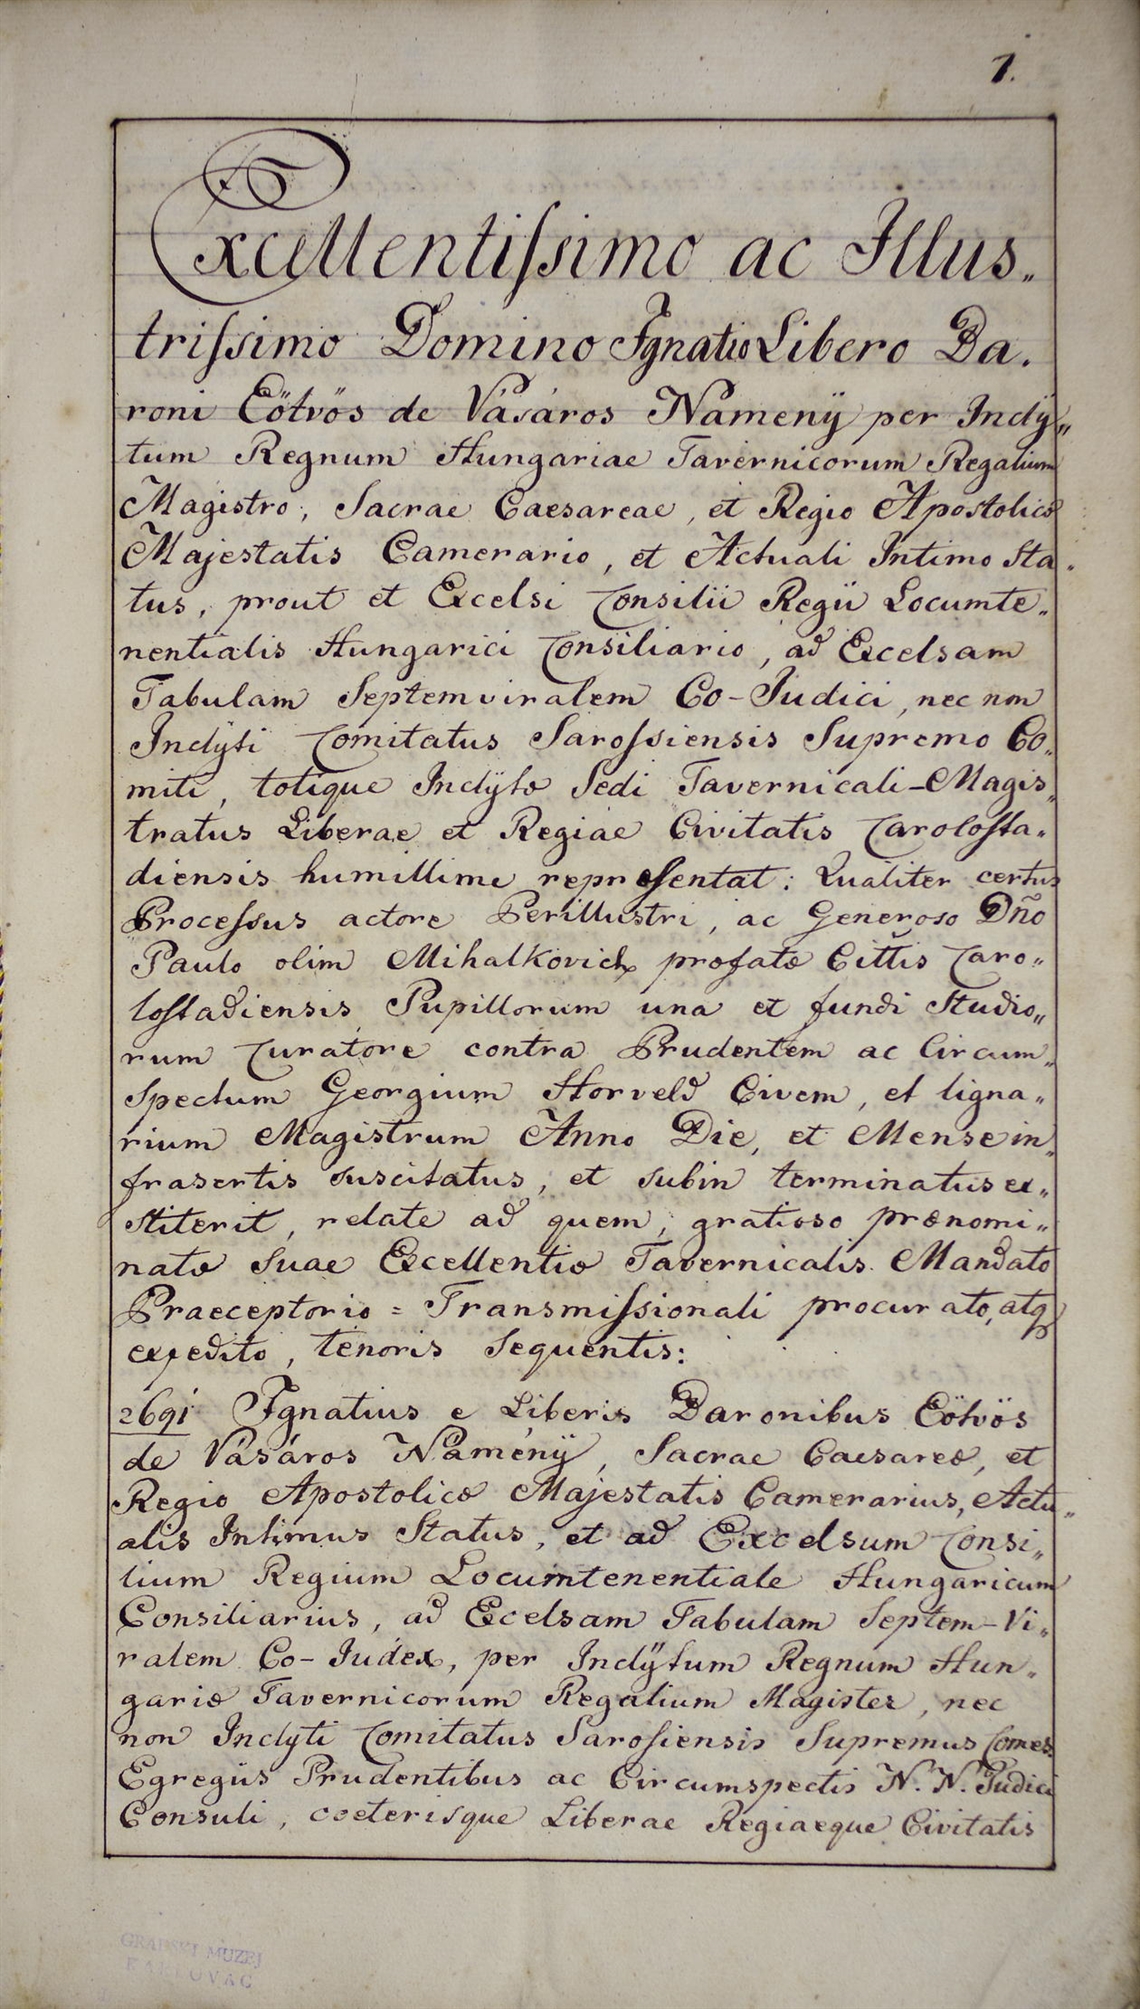 1.
Excellentiſsimo ac Illus„
triſsimo Domino Ignatio Libero Ba.
roni Eötvös de Vásáros Námenÿ per Incly„
tum Regnum Hungariae Tavernicorum Regalium
Magistro, Sacrae Caesareae, et Regio Apostolicæ
Majestatis Camerario, et Actuali Intimo Sta„
tus, prout et Excelsi Consilii Regii Locumte„
nentialis Hungarici Consiliario, ad Excelsam
Tabulam Septemviralem Co-Judici, nec non
Inclyti Comitatus Saroſsiensis Supremo Co„
miti, totique Inclÿtæ Sedi Tavernicali-Magis„
tratus Liberae et Regiae Civitatis Caroloſta„
diensis humillime repreſentat: Qualiter certus
Proceſsus actore Perillustri, ac Generoso Dño
Paulo olim Mihalkovich præfatæ Cittis Caro„
loſtadiensis Pupillorum una et fundi Studio„
rum Curatore contra Prudentem ac Circum„
spectum Georgium Horveld Civem, et ligna„
rium Magistrum Anno Die, et Mense in„
frasertis suscitatus, et subin terminatus ex„
stiterit, relate ad quem, gratioso prænomi„
natæ Suae Excellentiæ Tavernicalis Mandato
Praeceptorio = Transmiſsionali procurato, atq
expedito, tenoris sequentis:
2691 Ignatius e Liberis Baronibus Eötvös
de Vásáros Náménÿ, Sacrae Caesareæ, et
Regio Apostolicæ Majestatis Camerarius, Actu„
alis Intimus Status, et ad Excelsum Consi„
lium Regium Locumtenentiale Hungaricum
Consiliarius, ad Excelsam Tabulam Septem-Vi„
ralem Co-Judex, per Inclÿtum Regnum Hun„
gariæ Tavernicorum Regalium Magister, nec
non Inclyti Comitatus Saroſiensis Supremus Comes
Egregiis Prudentibus ac Circumspectis N. N. Judici
Consuli, cœterisque Liberae Regiaeque Civitatis
GRADSKI MUZEJ
KARLOVAC